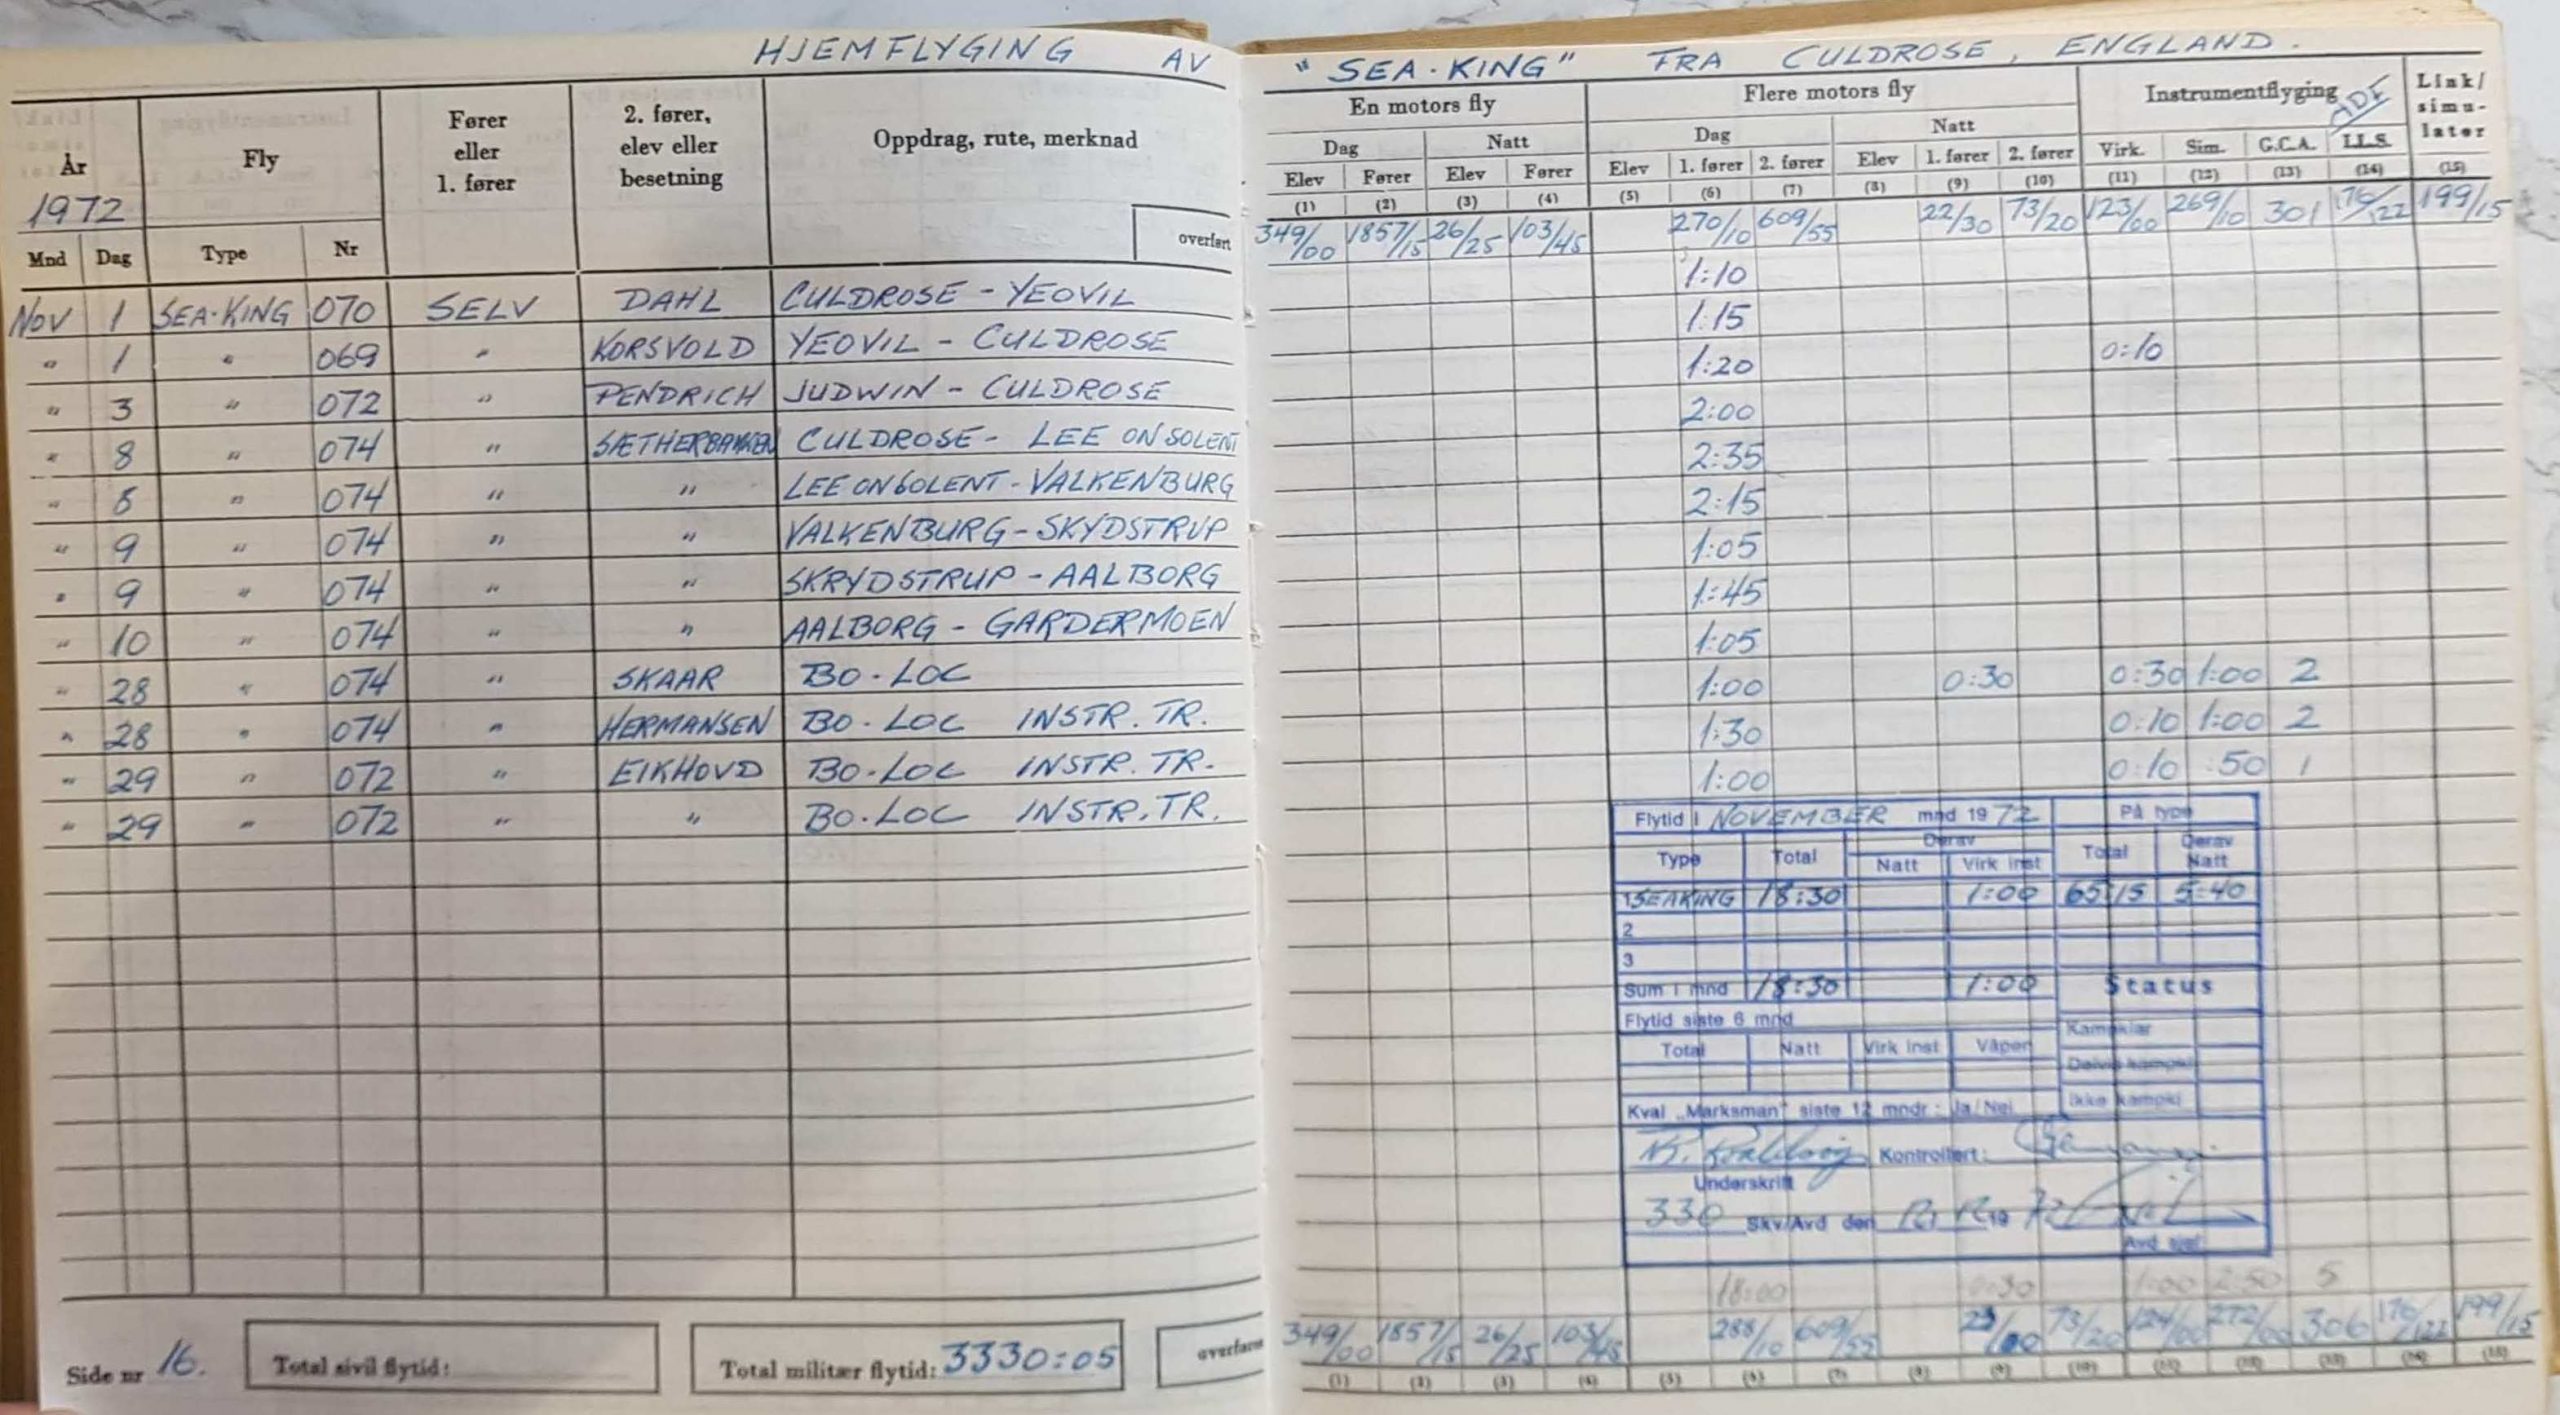 HJEMFLYGING AV "SEA-KING" FRA CULDROSE, ENGLAND.
År
1972
Mnd Dag
Fly
Type Nr
Fører
eller
1. fører
2. fører,
elev eller
besetning
Oppdrag, rute, merknad
overført
En motors fly
Dag Natt
Elev Fører Elev Fører
(1) (2) (3) (4)
Flere motors fly
Dag Natt
Elev 1. fører 2. fører Elev 1. fører 2. fører
(5) (6) (7) (8) (9) (10)
Instrumentflyging
ADF
Virk. Sim. G.C.A. I.L.S.
(11) (12) (13) (14)
Link/
simu-
lator
(15)
349/00 1857/15 26/25 103/45 270/10 609/55 22/30 73/20 123/00 269/10 301 176/122 199/15
NOV 1 SEA-KING 070 SELV DAHL CULDROSE - YEOVIL 1:10
" 1 " 069 " KORSVOLD YEOVIL - CULDROSE 1:15
" 3 " 072 " PENDRICH JUDWIN - CULDROSE 1:20 0:10
" 8 " 074 " SÆTHERBAKKEN CULDROSE - LEE ON SOLENT 2:00
" 8 " 074 " " LEE ON SOLENT - VALKENBURG 2:35
" 9 " 074 " " VALKENBURG - SKYDSTRUP 2:15
" 9 " 074 " " SKRYDSTRUP - AALBORG 1:05
" 10 " 074 " " AALBORG - GARDERMOEN 1:45
" 28 " 074 " SKAAR BO - LOC 1:05
" 28 " 074 " HERMANSEN BO - LOC INSTR. TR. 1:00 0:30 0:30 1:00 2
" 29 " 072 " EIKHOVD BO - LOC INSTR. TR. 1:30 0:10 1:00 2
" 29 " 072 " " BO - LOC INSTR. TR. 1:00 0:10 :50 1
Flytid i NOVEMBER mnd 1972 På type
Type Total Derav Total Derav
Natt Virk inst Natt
1 SEAKING 18:30 1:00 65:15 5:40
2
3
Sum i mnd 18:30 1:00 Status
Flytid siste 6 mnd
Kampklar
Total Natt Virk inst Våpen
Delvis kampkl
Ikke kampkl
Kval „Marksman" siste 12 mndr : Ja/Nei
Kontrollert:
Underskrift
330 Skv/Avd den 19 72
Avd sjef
18:00 0:30 1:00 2:50 5
Side nr 16.
Total sivil flytid:
Total militær flytid: 3330:05
overføres
349/00 1857/15 26/25 103/45 288/10 609/55 23/00 73/20 124/00 272/00 306 176/122 199/15
(1) (2) (3) (4) (5) (6) (7) (8) (9) (10) (11) (12) (13) (14) (15)